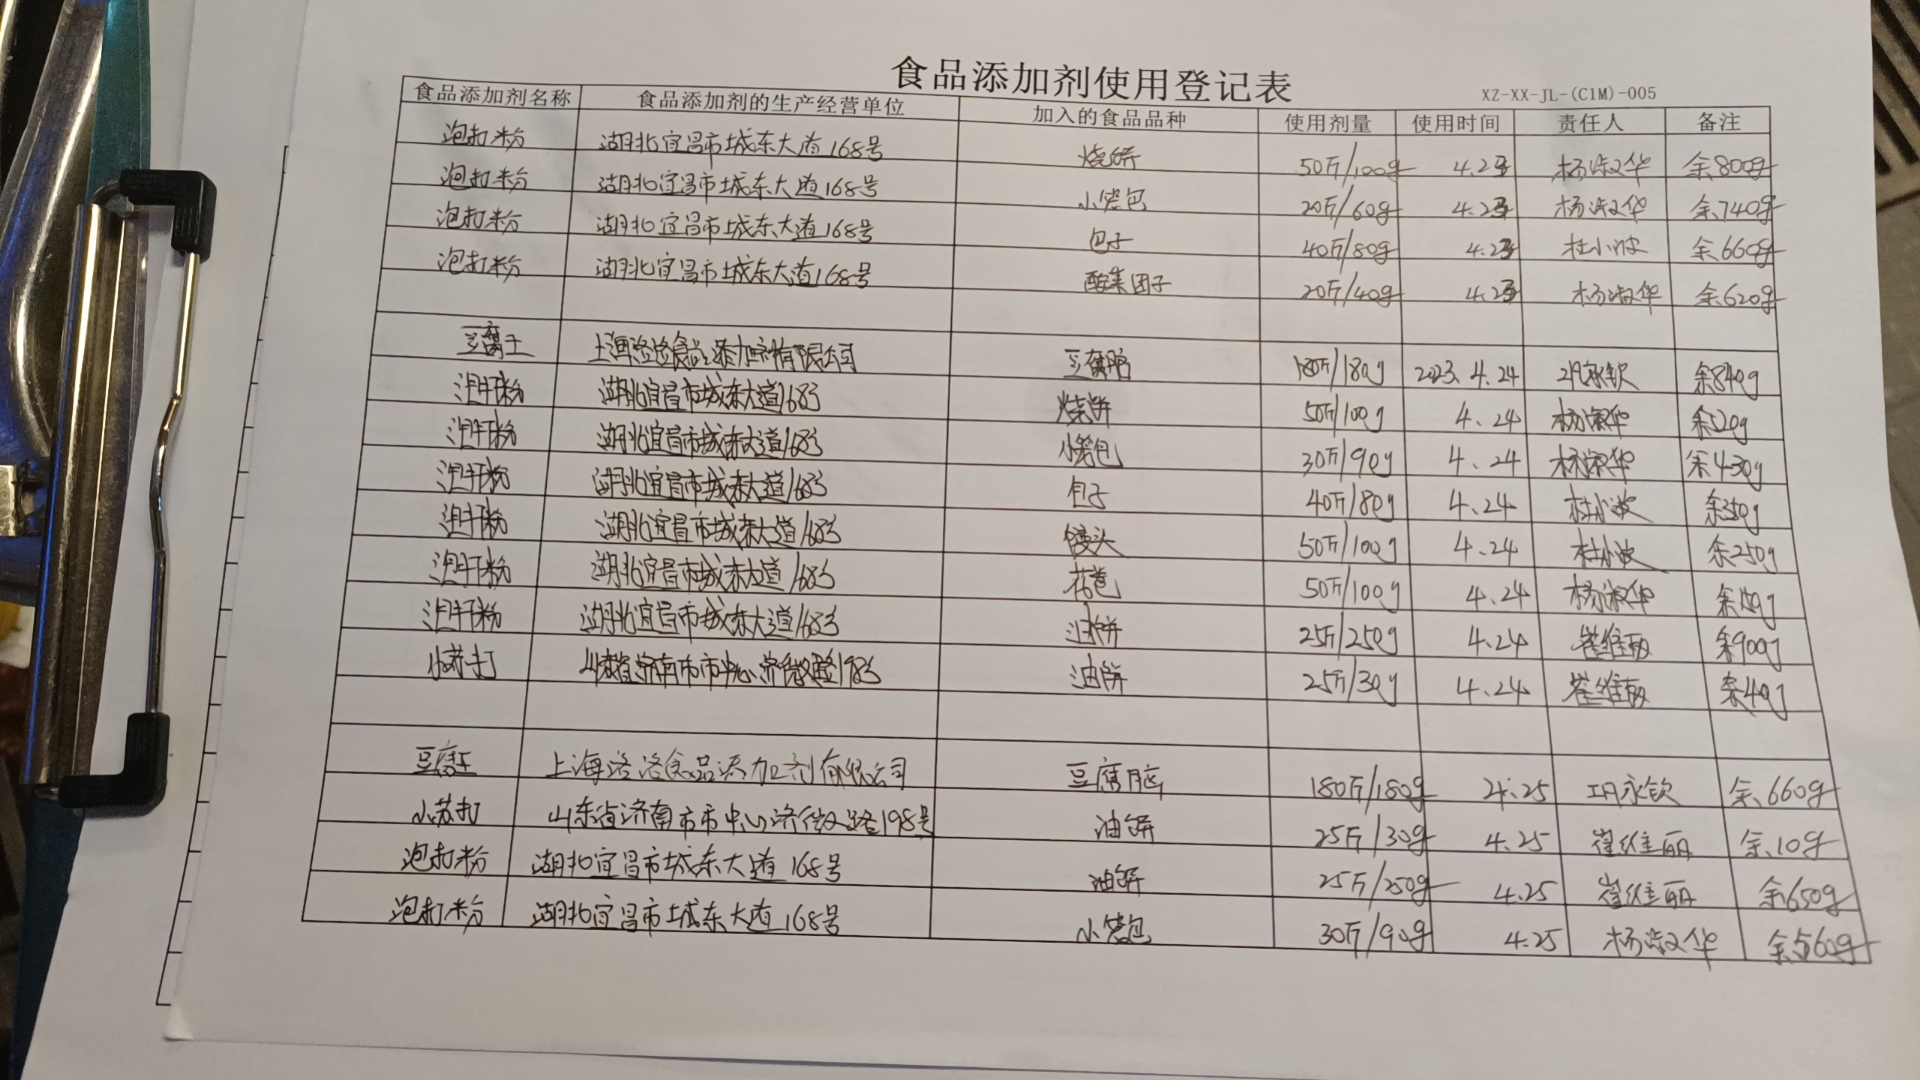 食品添加剂使用登记表
XZ-XX-JL-(C1M)-005
食品添加剂名称 食品添加剂的生产经营单位 加入的食品品种 使用剂量 使用时间 责任人 备注
泡打粉 湖北宜昌市城东大道168号 烧饼 50斤/100g 4.23 杨淑华 余800g
泡打粉 湖北宜昌市城东大道168号 小笼包 20斤/60g 4.23 杨淑华 余740g
泡打粉 湖北宜昌市城东大道168号 包子 40斤/80g 4.23 杜小波 余660g
泡打粉 湖北宜昌市城东大道168号 团子 20斤/40g 4.23 杨淑华 余620g
豆腐王 上海洛洛食品添加剂有限公司 豆腐脑 180斤/180g 2023.4.24 永钦 余840g
泡打粉 湖北宜昌市城东大道168号 烧饼 50斤/100g 4.24 杨淑华
泡打粉 湖北宜昌市城东大道168号 小笼包 30斤/90g 4.24 杨淑华 余430g
泡打粉 湖北宜昌市城东大道168号 包子 40斤/80g 4.24 杜小波 余350g
泡打粉 湖北宜昌市城东大道168号 馒头 50斤/100g 4.24 杜小波 余250g
泡打粉 湖北宜昌市城东大道168号 花卷 50斤/100g 4.24 杨淑华 余150g
泡打粉 湖北宜昌市城东大道168号 油饼 25斤/250g 4.24 崔维丽 余900g
小苏打 山东省济南市市中心济微路198号 油饼 25斤/30g 4.24 崔维丽 余40g
豆腐王 上海洛洛食品添加剂有限公司 豆腐脑 180斤/180g 4.25 永钦 余660g
小苏打 山东省济南市市中心济微路198号 油饼 25斤/30g 4.25 崔维丽 余10g
泡打粉 湖北宜昌市城东大道168号 油饼 25斤/250g 4.25 崔维丽 余650g
泡打粉 湖北宜昌市城东大道168号 小笼包 30斤/90g 4.25 杨淑华 余560g